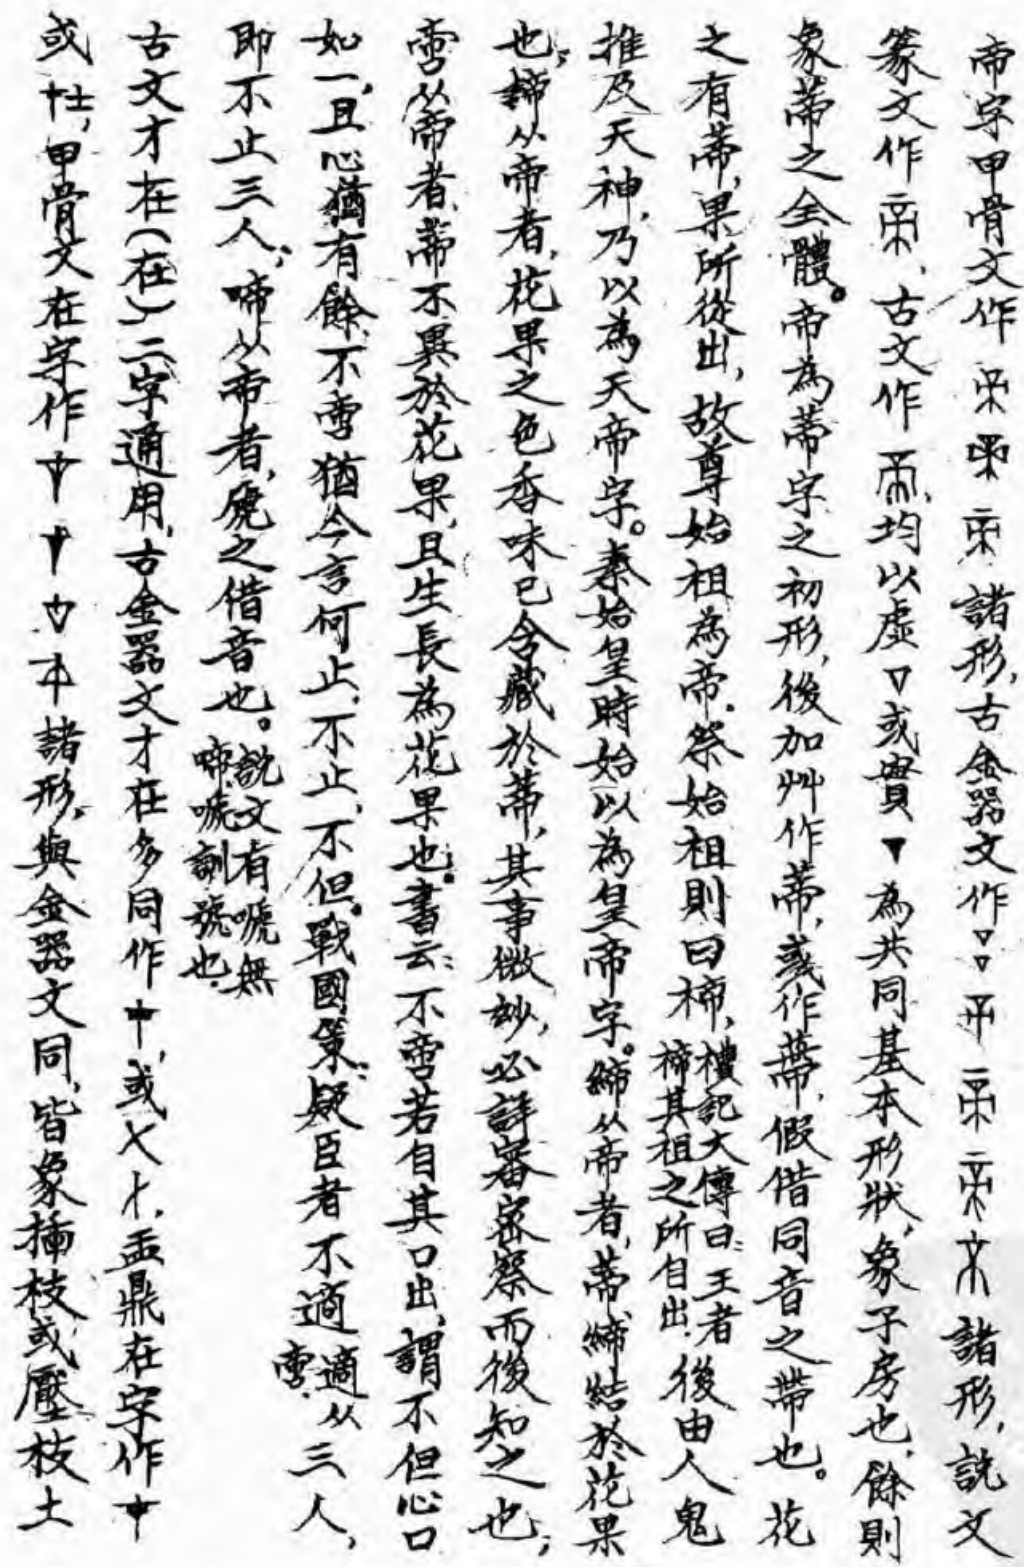 帝字甲骨文作 諸形,古金器文作▽▽ 諸形,說文
篆文作帝、古文作 ,均以虛▽或實▼為共同基本形狀,象子房也,餘則
象蒂之全體。帝為蒂字之初形,後加艸作蒂,或作蔕,假借同音之帶也。花
之有蒂,果所從出,故尊始祖為帝.祭始祖則曰禘,禮記大傳曰:王者禘其祖之所自出.後由人鬼
推及天神,乃以為天帝字。秦始皇時始以為皇帝字。締从帝者,蒂締結於花果
也,諦从帝者,花果之色香味已含藏於蒂,其事微妙,必詳審密察而後知之也;
啻从帝者、蒂不異於花果,且生長為花果也。書云:不啻若自其口出,謂不但心口
如一,且心猶有餘、不啻猶今言何止、不止,不但。戰國策:疑臣者不適啻.適从三人,
即不止三人,啼从帝者,虒之借音也。說文有嗁無啼,嗁訓號也.
古文才在(在)二字通用,古金器文才在多同作 ,或 .盂鼎在字作
或 ,甲骨文在字作 諸形,與金器文同,皆象插枝或壓枝土